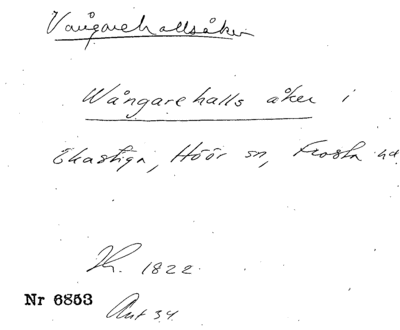 Vångarehallsåker
Wångarehalls åker i
Ekastiga, Höör sn, Frosta hd
Lh. 1822
Nr 6853
Ant 34